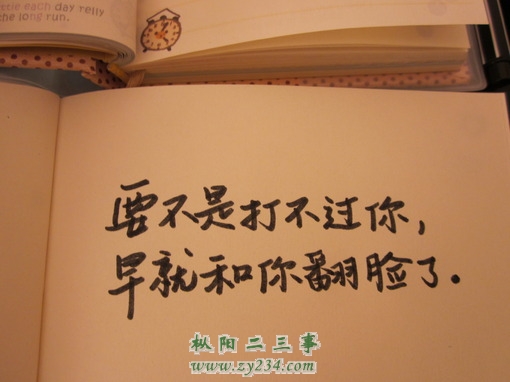 ttle each day relly
the long run.
要不是打不过你，
早就和你翻脸了.
枞阳二三事
www.zy234.com